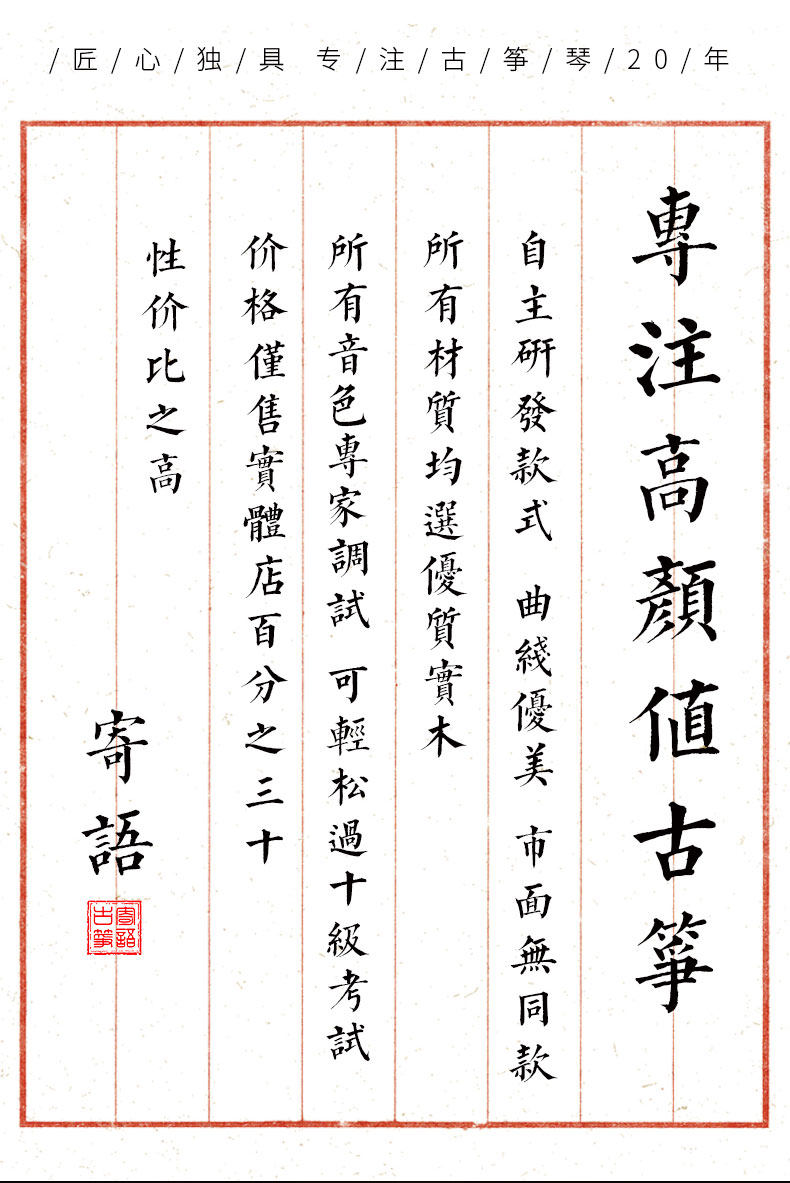 /匠/心/独/具 专/注/古/筝/琴/20/年
專注高顏值古箏
自主研發款式 曲綫優美 市面無同款
所有材質均選優質實木
所有音色專家調試 可輕松過十級考試
价格僅售實體店百分之三十
性价比之高
寄語
寄語古箏